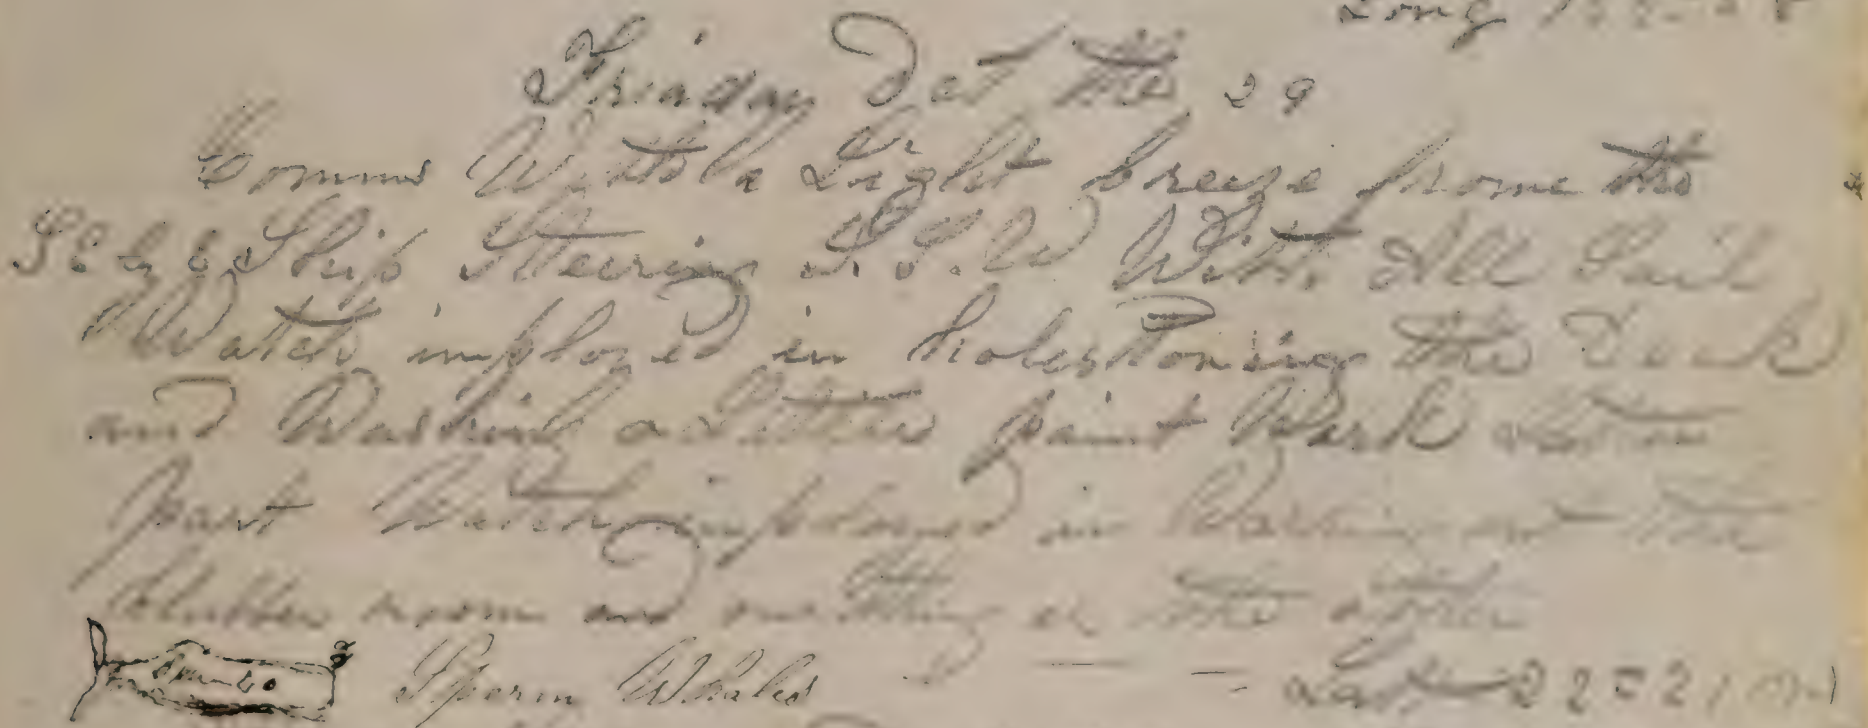 Long
Friaday Oct the 29
Comms With a Light breeze from the
SE by E Ship Steering S.S.W With All Sail
Watch imployed in holestoning the Deck
and Washing a Little paint Work
part Watch imployed in Washing out the
blubber room and one thing or the other
Sperm Whales Lat 22 = 21